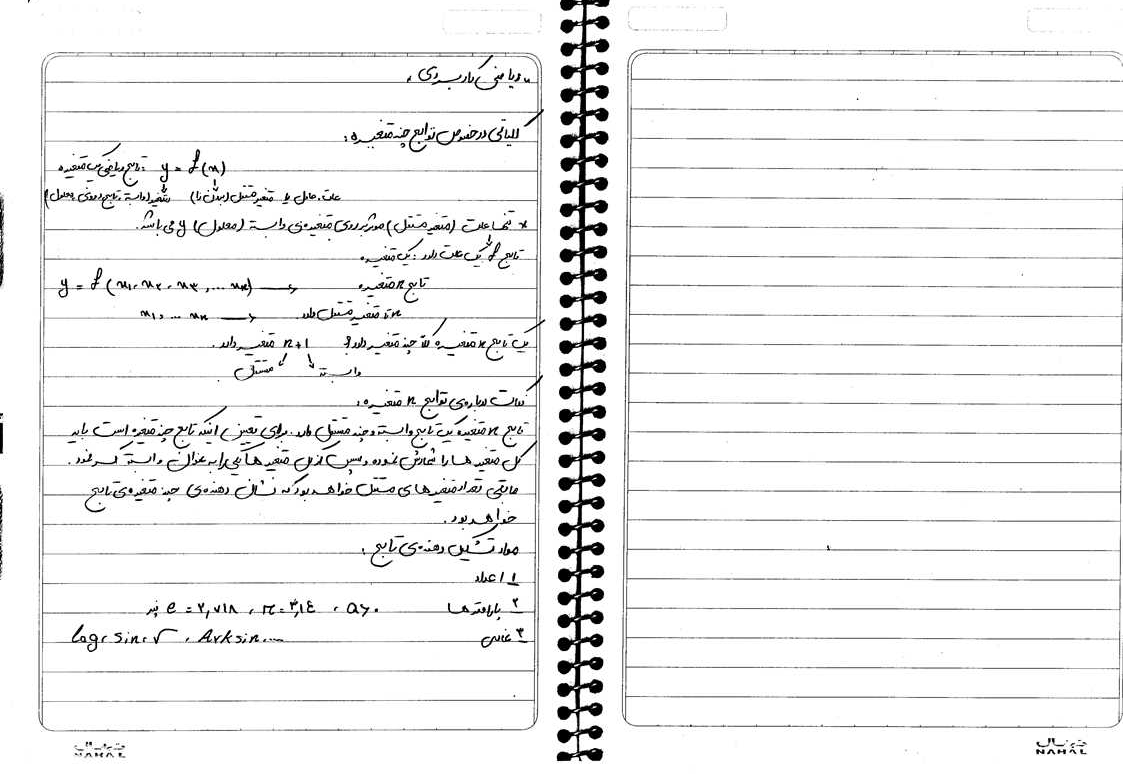 ریاضی کاربردی.
کلیاتی درخصوص توابع چند متغیره:
تابع ریاضی یک متغیره: y = f(x)
علت، عامل یا متغیر مستقل متغیر وابسته، تابع معلول)
* تنها علت (متغیر مستقل) موثر بر روی متغیره‌ی وابسته (معلول) y می باشد.
تابع f یک علت دارد: یک متغیره
تابع n متغیره y = f (x₁, x₂, x₃, ... xₙ) →
n تا متغیر مستقل دارد. x₁, ... xₙ →
یک تابع n متغیره کلا چند متغیر دارد؟ n+1 متغیر دارد.
وابسته مستقل
نکات درباره‌ی توابع n متغیره:
تابع n متغیره یک تابع وابسته و چند مستقل دارد. برای تعیین اینکه تابع چند متغیره است باید
کل متغیر ها را شمارش نموده و سپس از کل متغیر ها یکی را به عنوان وابسته کسر نمود.
مابقی تعداد متغیر های مستقل خواهد بود که نشان دهنده‌ی چند متغیره‌ی تابع
خواهد بود.
موارد تشکیل دهنده‌ی تابع:
۱ اعداد
۲ پارامترها a>۰ , π=۳,۱٤ , e=۲,۷۱۸
۳ log, sin, √, Arksin...
نهال
NAHAL
نهال
NAHAL